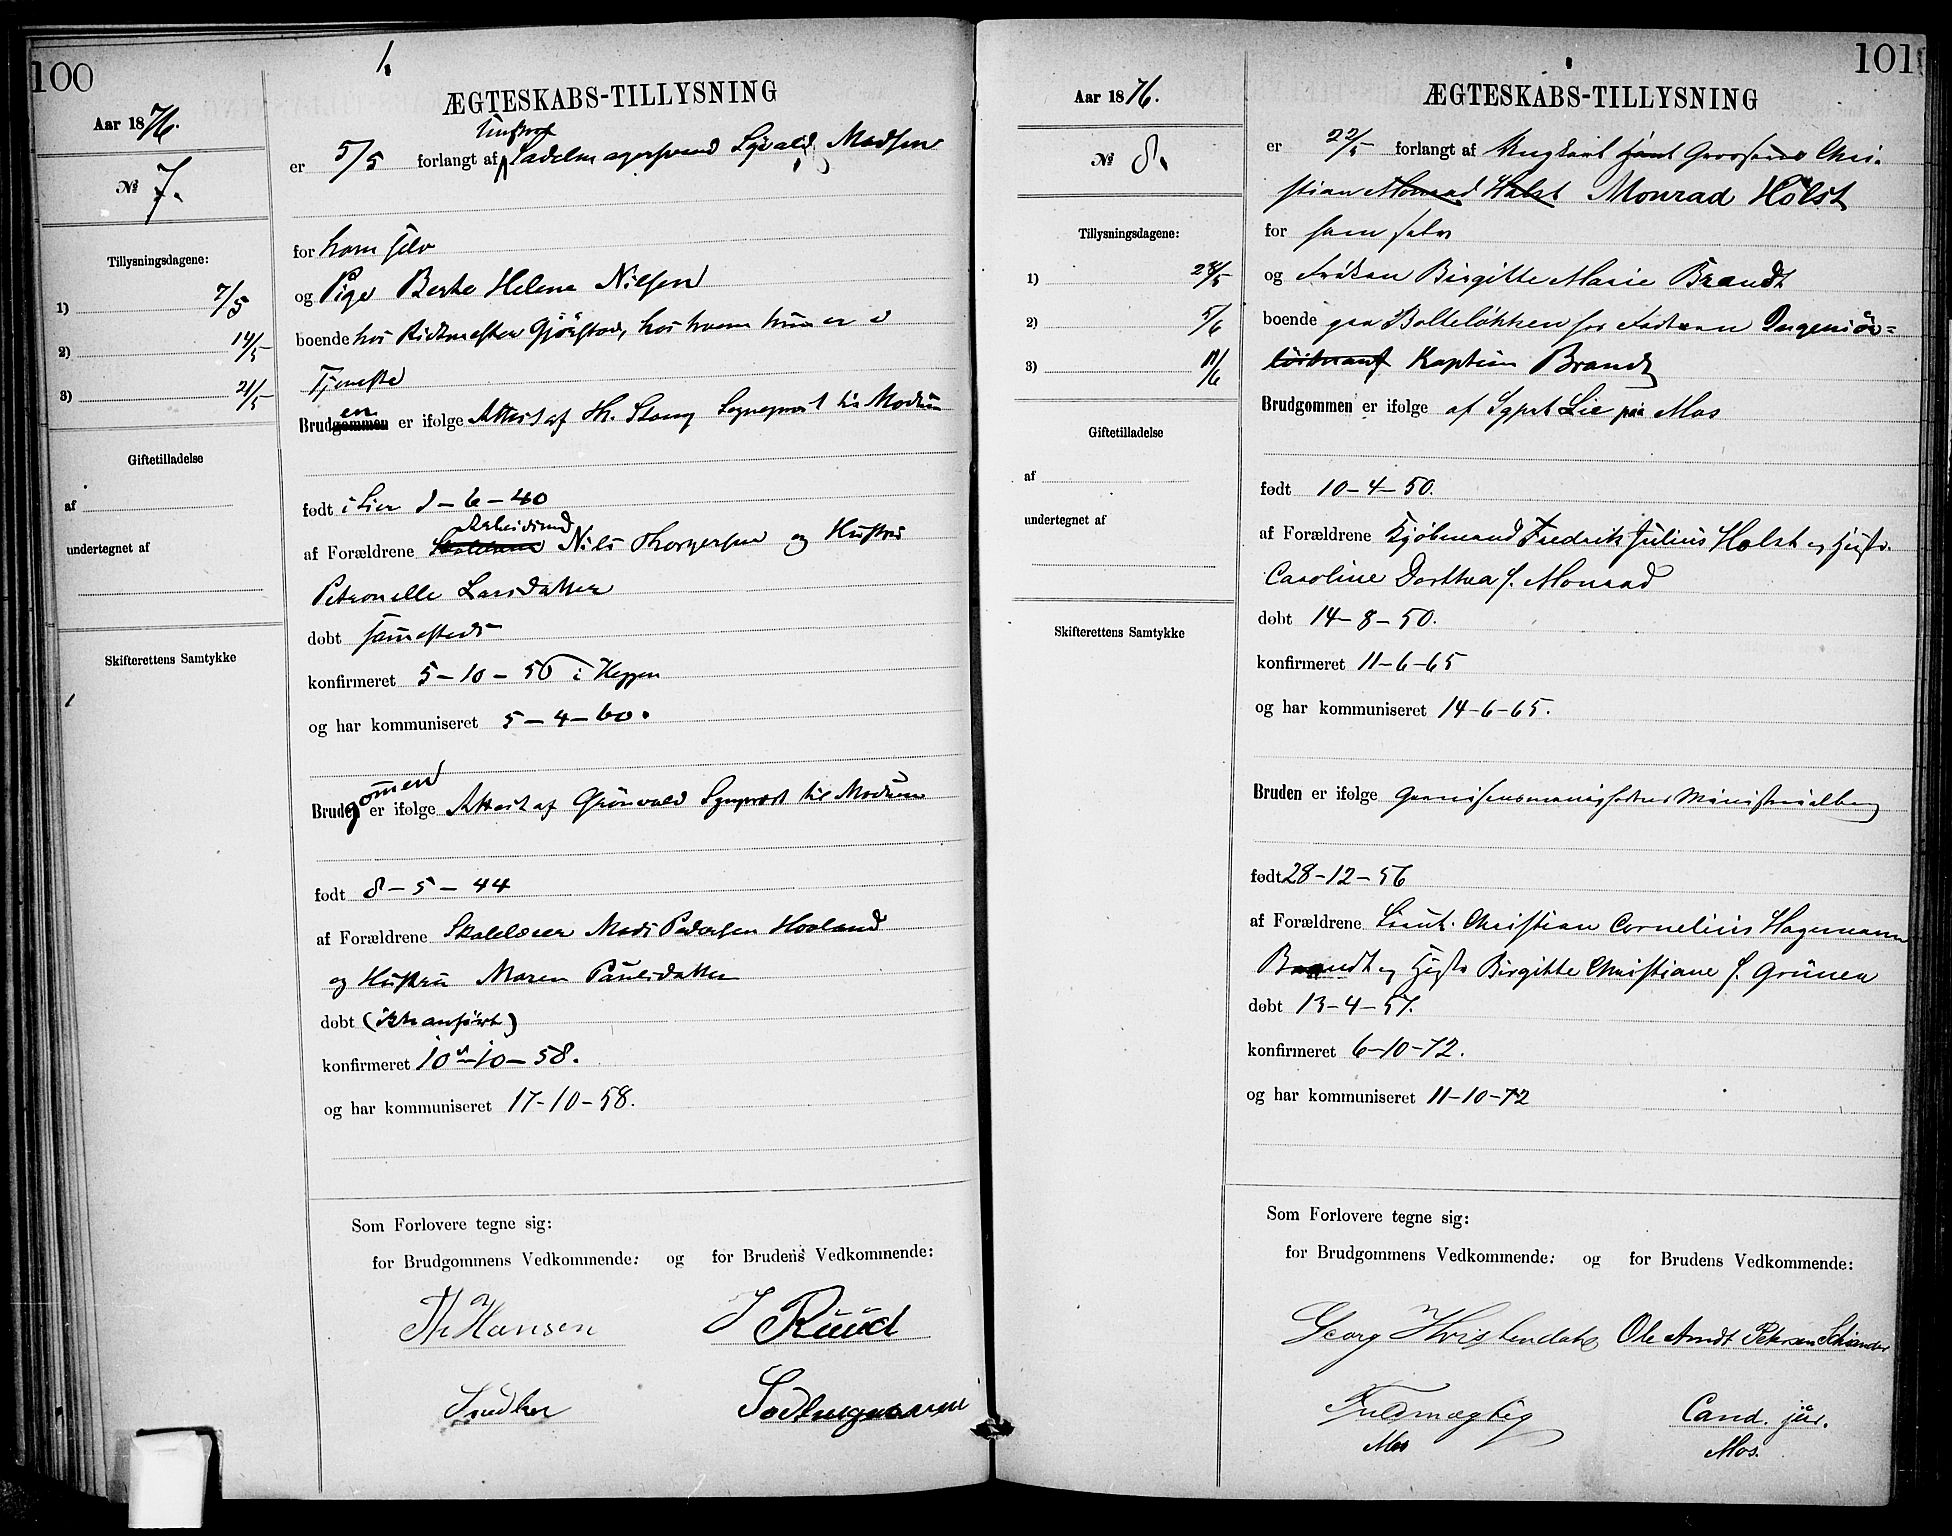 100
1.
Aar 1876.
ÆGTESKABS-TILLYSNING
№ 7.
Ungkarl
er 5/5 forlangt af Sadelmagersvend Madsen
for ham selv
Tillysningsdagene:
og Pige Berte Helene Nilsen
1) 7/5
boende hos Ridtmester Gjörstad, hos hvem hun er i
2) 14/5
Tjeneste
3) 21/5
en
Brudgommen er ifølge Attest af Th. Stang Sogneprest til Modum
Giftetilladelse
af
født i Lier 8-6-40
undertegnet af
af Forældrene Nils Thorgersen og Hustru
Petronelle Larsdatter
døbt sammesteds
Skifterettens Samtykke
konfirmeret 5-10-50 i Heggen
og har kommuniseret 5-4-60.
gommen
Bruden er ifølge Attest af Grönvold Sognprest til Modum
født 8-5-44
af Forældrene Skolelærer Mads Pedersen Hovland
og Hustru Maren Paulsdatter
døbt (ikke anført)
konfirmeret 10-10-58.
og har kommuniseret 17-10-58.
Som Forlovere tegne sig:
for Brudgommens Vedkommende: og for Brudens Vedkommende:
Hansen J Ruud
Snedker Sadelmagersvend
101
Aar 1876.
ÆGTESKABS-TILLYSNING
№ 8.
er 22/5 forlangt af Ungkarl Grosserer Chri-
stian Monrad Holst Monrad Holst
for ham selv
Tillysningsdagene:
og Frøken Birgitte Marie Brandt
1) 28/5
boende paa Bolteløkken hos Faderen Ingeniør-
2) 5/6
löitnant Kaptein Brandt
3) 11/6
Brudgommen er ifølge af Sgprst Lie paa Mos
Giftetilladelse
af
født 10-4-50.
undertegnet af
af Forældrene Kjøbmand Fredrik Julius Holst og Hust.
Caroline Dorthea f. Monrad
døbt 14-8-50.
Skifterettens Samtykke
konfirmeret 11-6-65
og har kommuniseret 14-6-65.
Bruden er ifølge Garnisonsmenighedens Ministerialbog
født 28-12-56
af Forældrene Lieut. Christian Cornelius Hagemann
Brandt og Hust. Birgitte Christiane f. Grüner
døbt 13-4-57.
konfirmeret 6-10-72.
og har kommuniseret 11-10-72
Som Forlovere tegne sig:
for Brudgommens Vedkommende: og for Brudens Vedkommende:
Georg Hvistendahl Ole Arndt Petersen Schiander
Fuldmægtig Cand. jur.
Mos Mos.